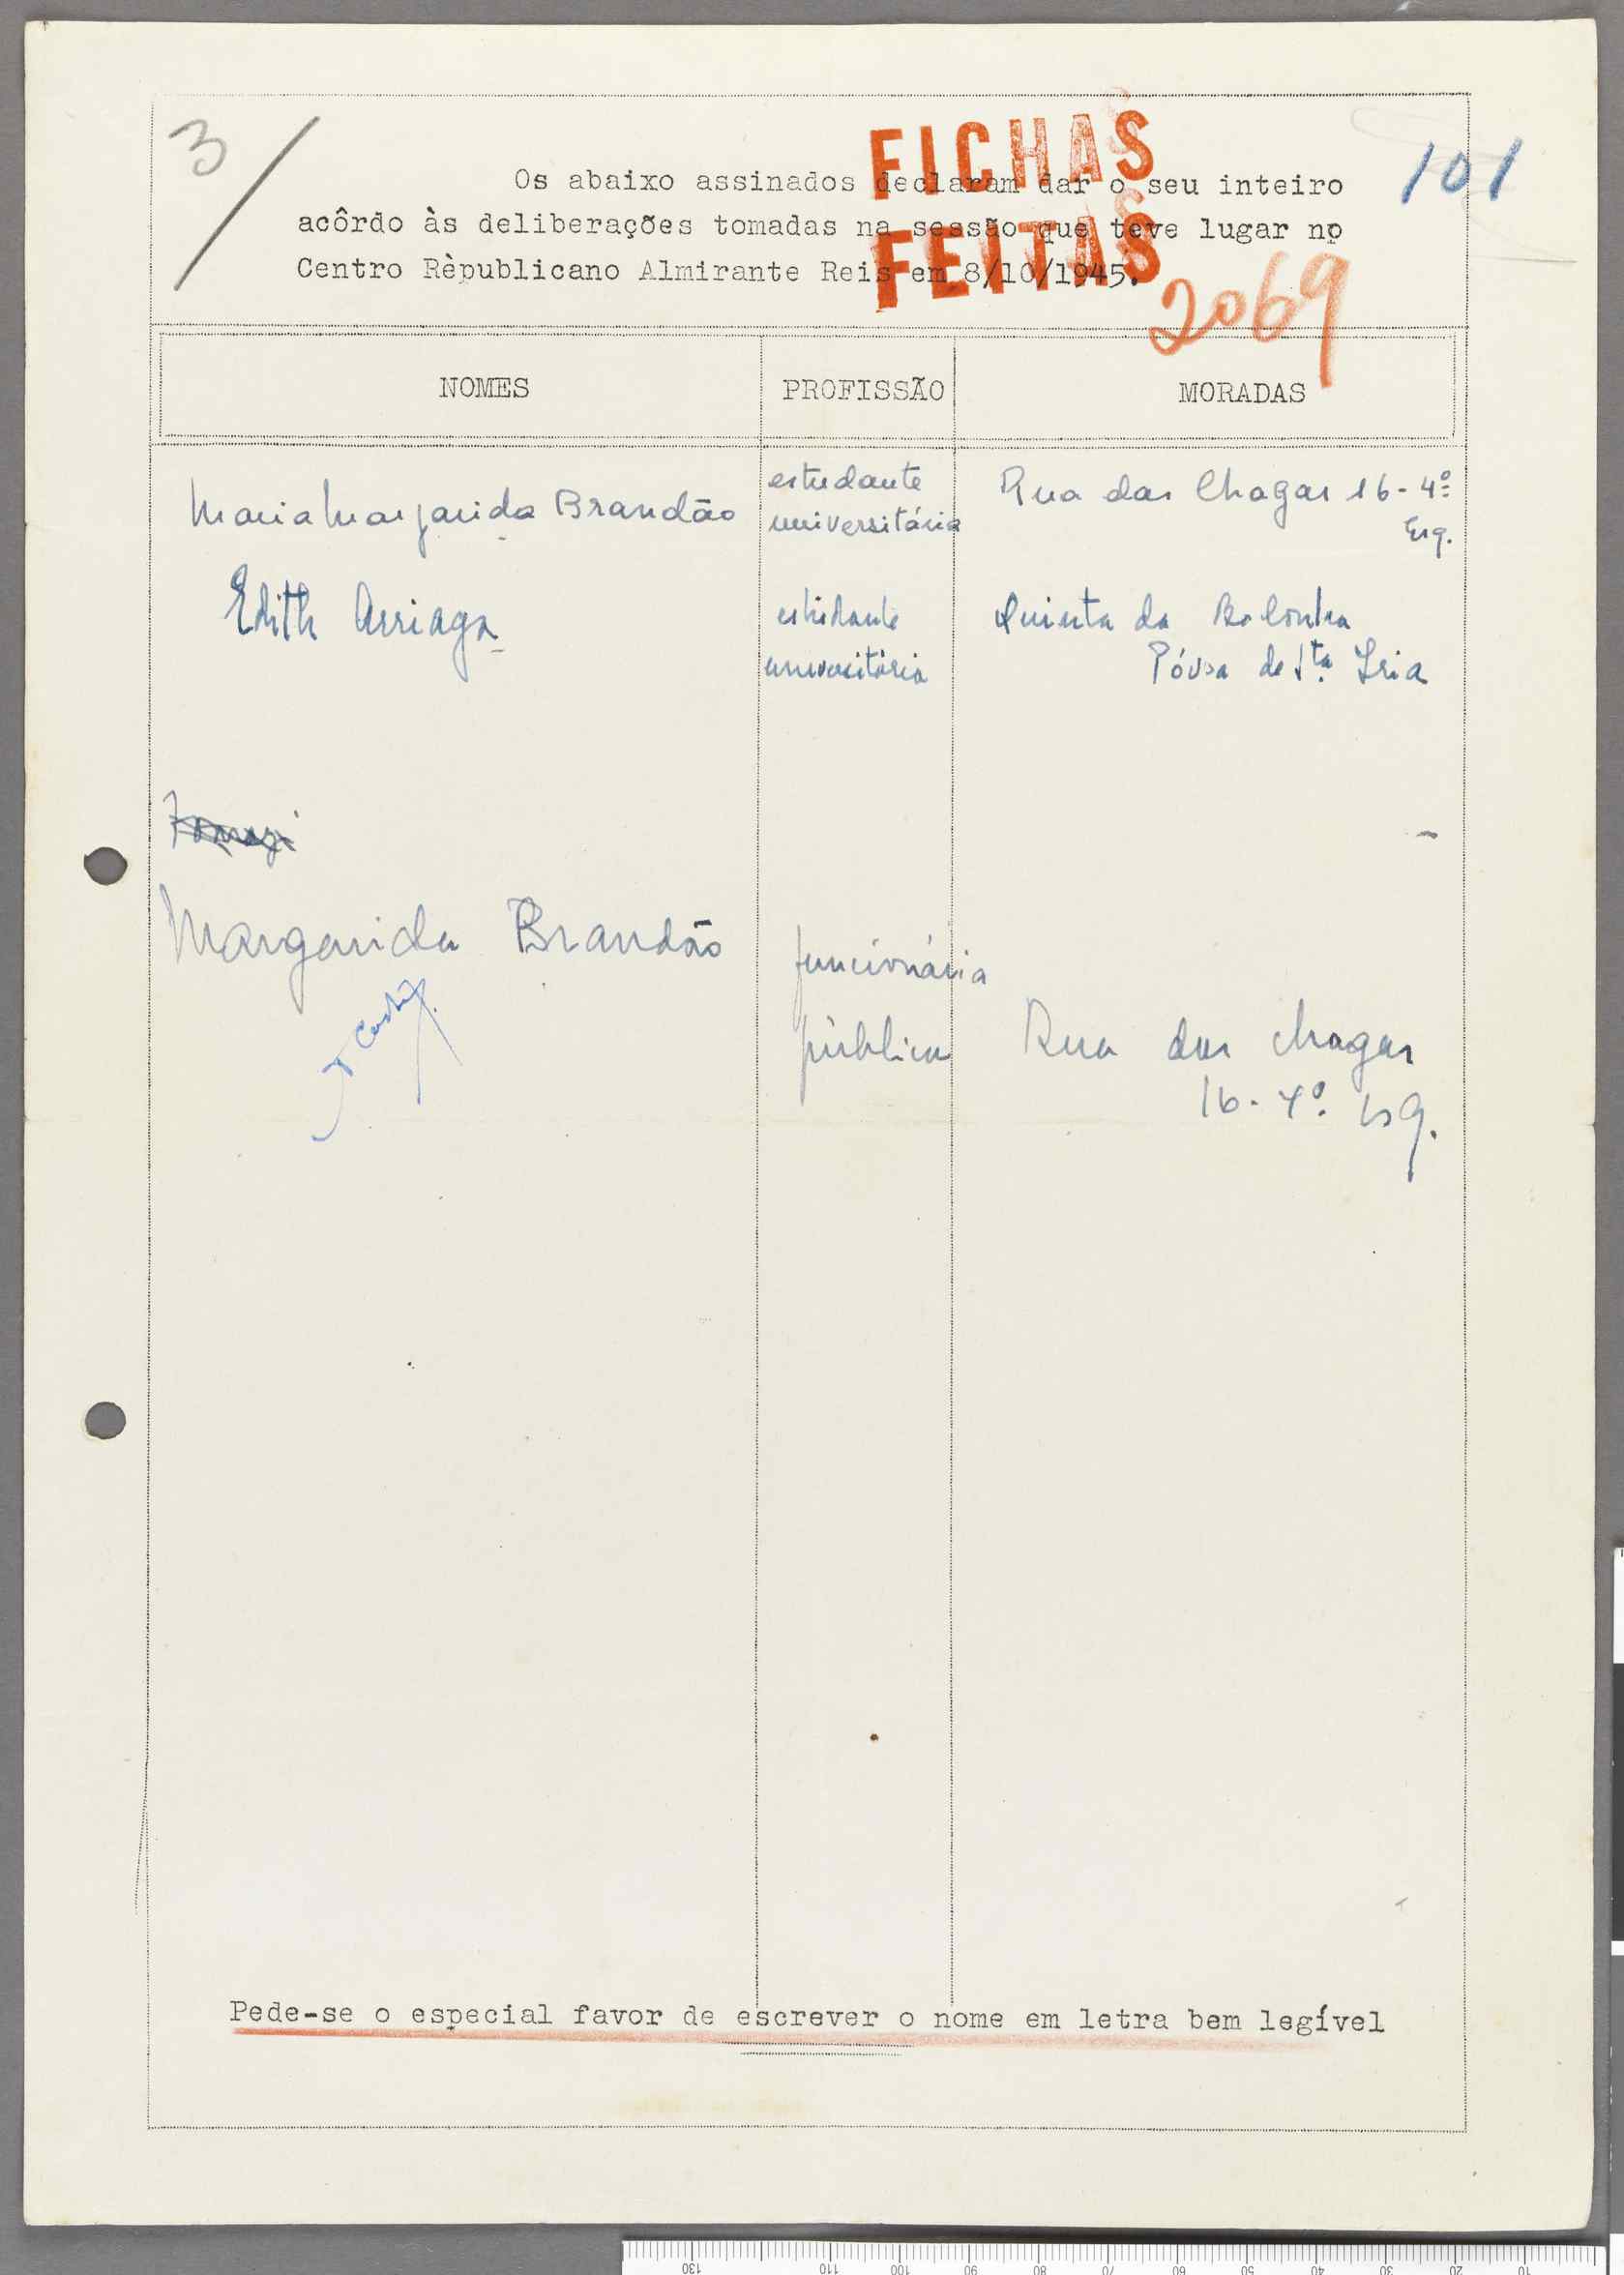 3/
FICHAS
FEITAS
101
Os abaixo assinados declaram dar o seu inteiro
acôrdo às deliberações tomadas na sessão que teve lugar no
Centro Rèpublicano Almirante Reis em 8/10/1945.
2069
NOMES PROFISSÃO MORADAS
Maria Margarida Brandão estudante universitária Rua das Chagas 16-4º Esq.
Edith Arriaga estudante universitária Quinta da Bolonha
Póvoa de Sta. Iria
Margarida Brandão funcionária pública Rua das Chagas
16-4º. Esq.
Pede-se o especial favor de escrever o nome em letra bem legível
130 110 100 90 80 70 60 50 40 30 20 10